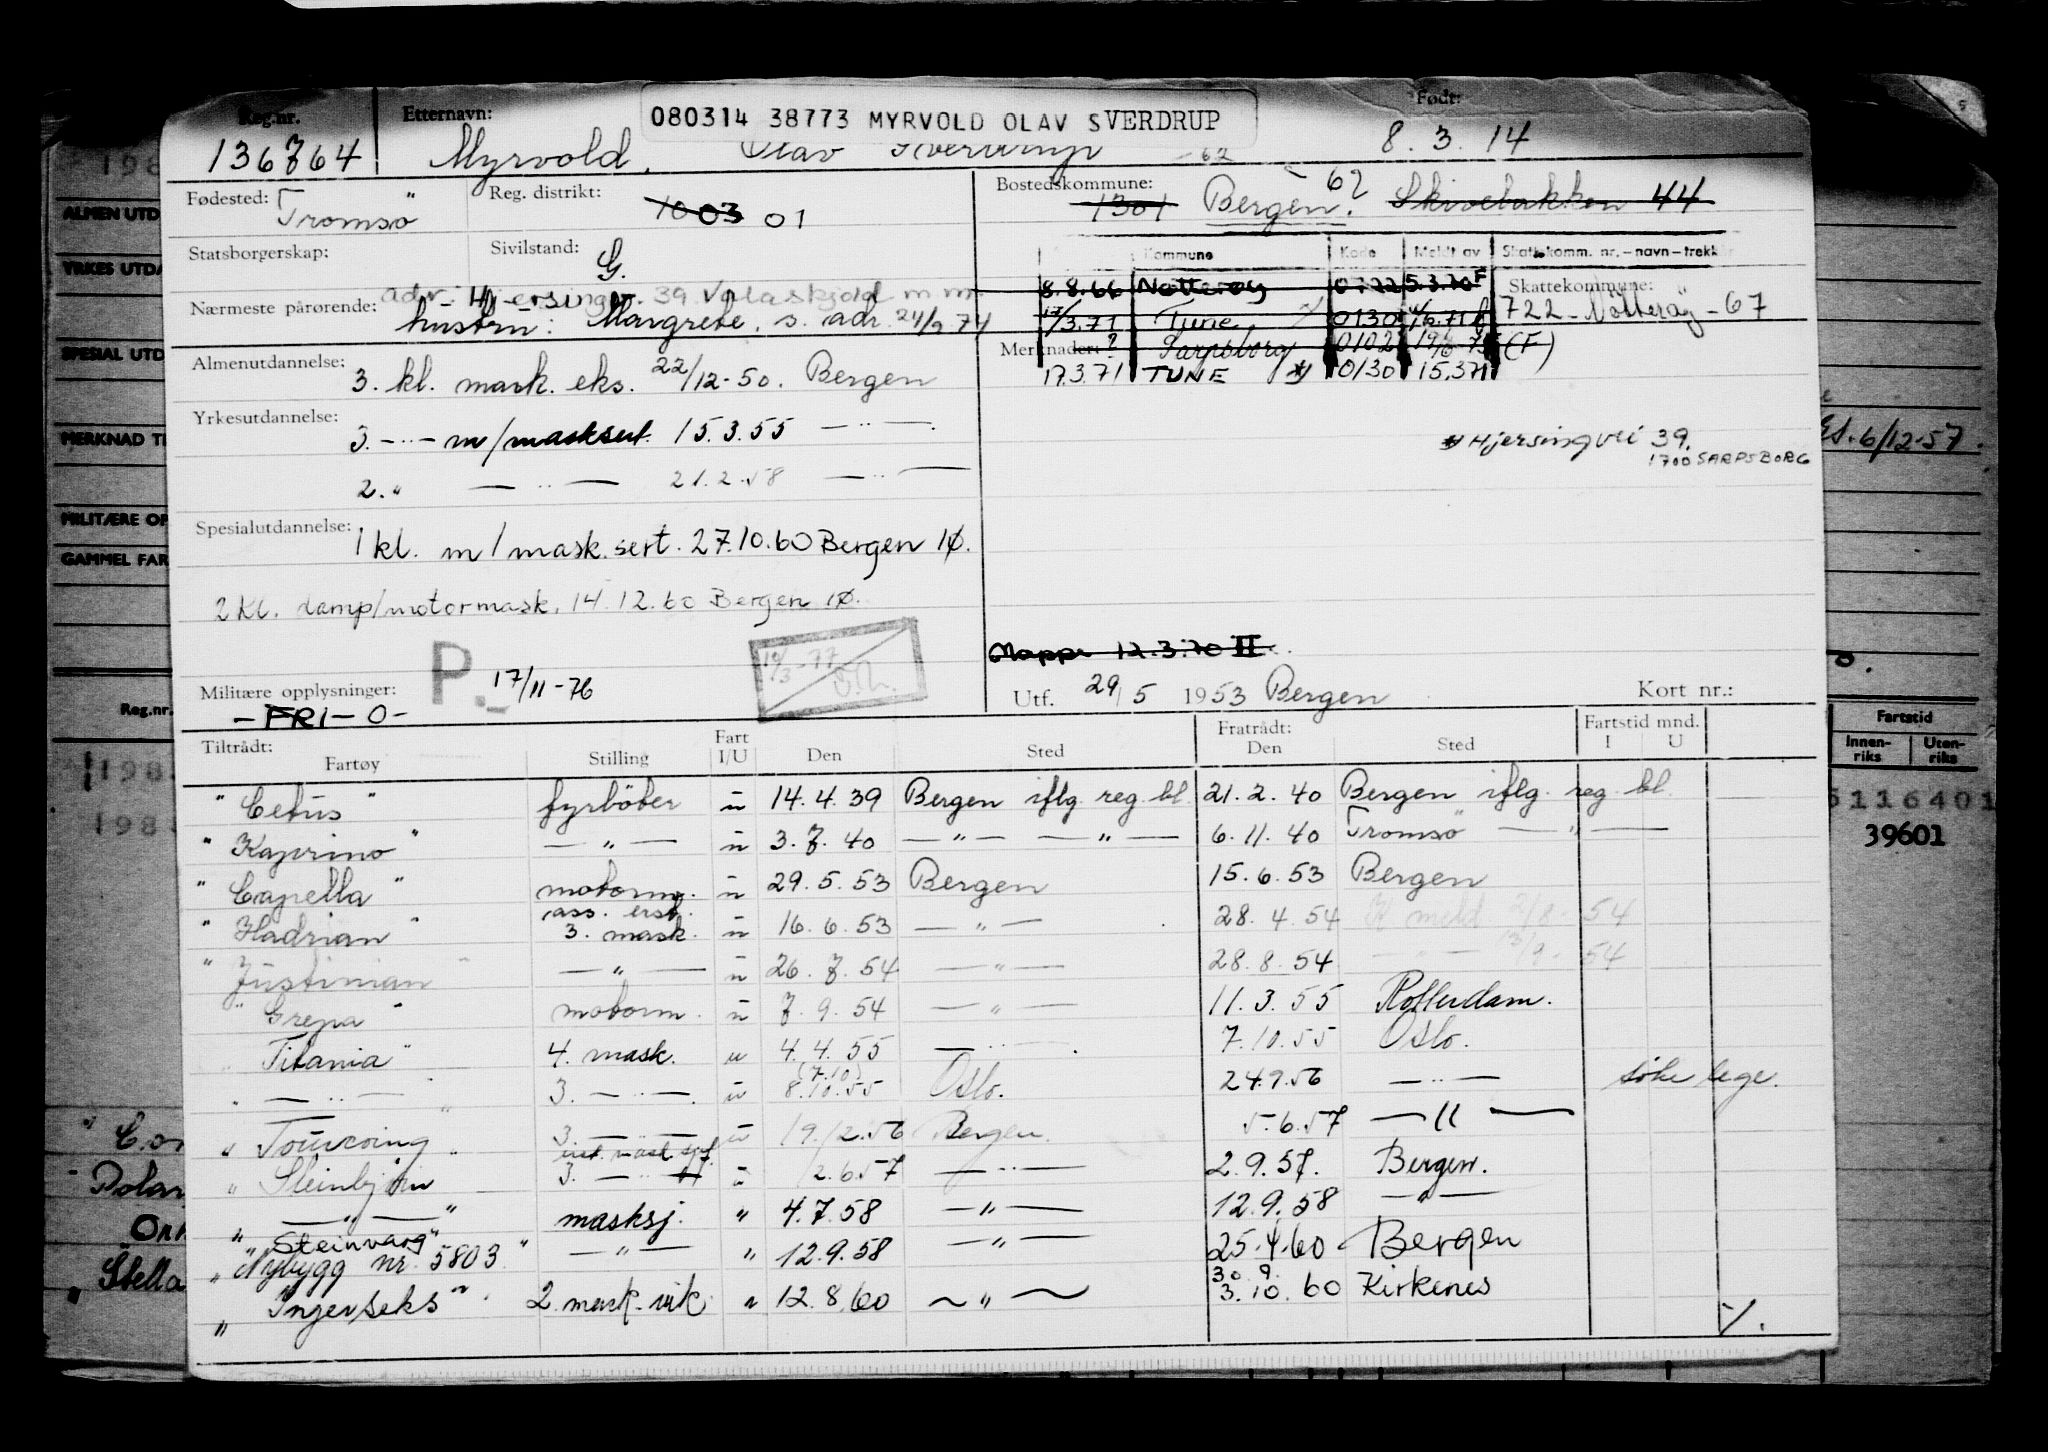 Reg.nr. Etternavn: 080314 38773 MYRVOLD OLAV SVERDRUP Født:
136764 Myrvold, Olav Sverdrup 8.3.14
Fødested: Tromsö Reg. distrikt: 10 03 01
Bostedskommune: 1301 Bergen. 62 Skivebakken 44
Statsborgerskap: Sivilstand: G.
Kommune Kode Meldt av Skattekomm. nr.-navn-trekk
8.8.66 Nøtterøy 0722 5.3.70 F Skattekommune:
Nærmeste pårørende: hustru: Margrete, s. adr. 24/9 74
17/3.71 Tune 0130 722-Nötteröy-67
Merknader: ? Sarpsborg 0102 (F)
17.3.71 TUNE 0130 15.371
Almenutdannelse: 3. kl. mask. eks. 22/12-50. Bergen
Yrkesutdannelse: 3. -"- m/masksert. 15.3.55 -"-
Hjersingvei 39.
1700 SARPSBORG
2. " -"- 21.2.58 -"-
Spesialutdannelse: 1 kl. m/mask. sert. 27.10.60 Bergen IØ.
2 kl. damp/motormask. 14.12.60 Bergen IØ.
Mappe 12.3.70 II
P. 17/11-76
Militære opplysninger: -FRI-O-
Utf. 29/5 1953 Bergen Kort nr.:
Tiltrådt: Fratrådt: Fartstid mnd.
Fartøy Stilling Fart I/U Den Sted Den Sted I U
"Cetus" fyrböter u 14.4.39 Bergen iflg. reg. bl. 21.2.40 Bergen iflg. reg. bl.
"Kaprino" -"- u 3.7.40 -"- -"- 6.11.40 Tromsö -"-
"Capella" motorm. u 29.5.53 Bergen 15.6.53 Bergen
"Hadrian" ass. erst. 3. mask. u 16.6.53 -"- 28.4.54 meld 2/8-54
"Justinian" -"- u 26.7.54 -"- 28.8.54 -"- 13/9-54
"Grepa" motorm. u 7.9.54 -"- 11.3.55 Rotterdam.
"Titania" 4. mask. u 4.4.55 -"- 7.10.55 Oslo.
" -"- " 3. -"- u (7.10) 8.10.55 Oslo. 24.9.56 -"- söke lege.
"Tourcoing" 3. -"- u 19.12.56 Bergen. 5.6.57 -"-
"Steinbjörn" 3. -"- u 12.6.57 -"- 2.9.57. Bergen.
" -"- " masksj. " 4.7.58 -"- 12.9.58 -"-
"Steinvarg"
"Nybygg nr. 5803" -"- " 12.9.58 -"- 25.4.60 Bergen
"Ingerseks" 2. mask. vik. " 12.8.60 -"- 30.9. 3.10.60 Kirkenes
·/.
198
ALMEN UTD
YRKES UTDA
SPECIAL UTD
MERKNAD TI
MILITÆRE OP
GAMMEL FAR
Reg.nr.
198
198
Polar
Stella
6/12-57.
Fartstid
Innenriks Utenriks
5116401
39601